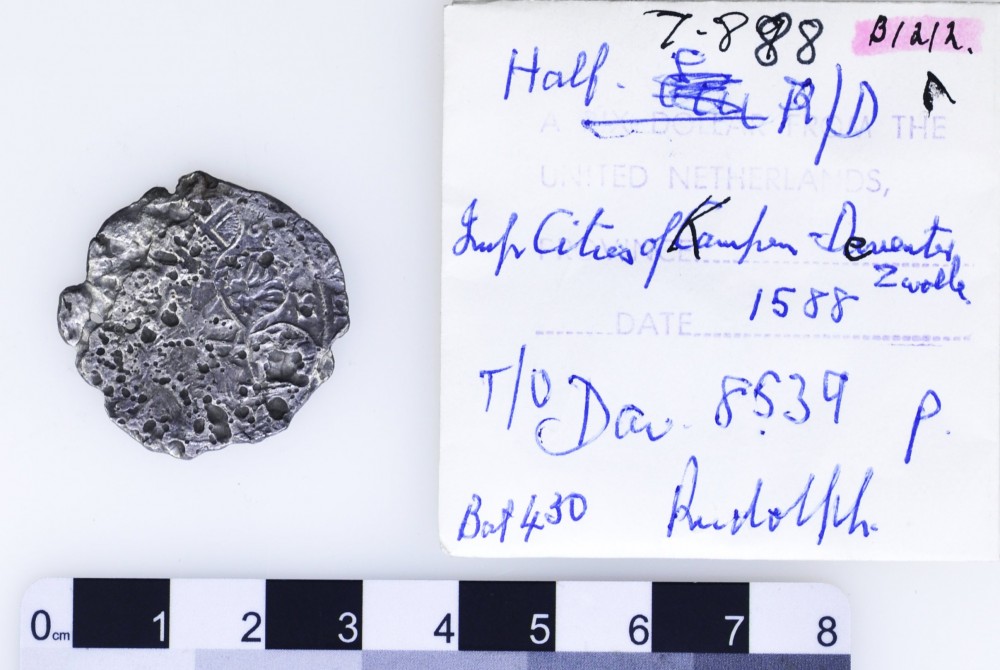 7-888 B/2/2.
Half. R/D
A RIXEDOLLAR FROM THE
UNITED NETHERLANDS,
Imp Cities of Kampen - Deventer
Zwolle
1588
DATE
T/U Dav. 8539 P.
Bat 430 Rudolph.
0 cm 1 2 3 4 5 6 7 8